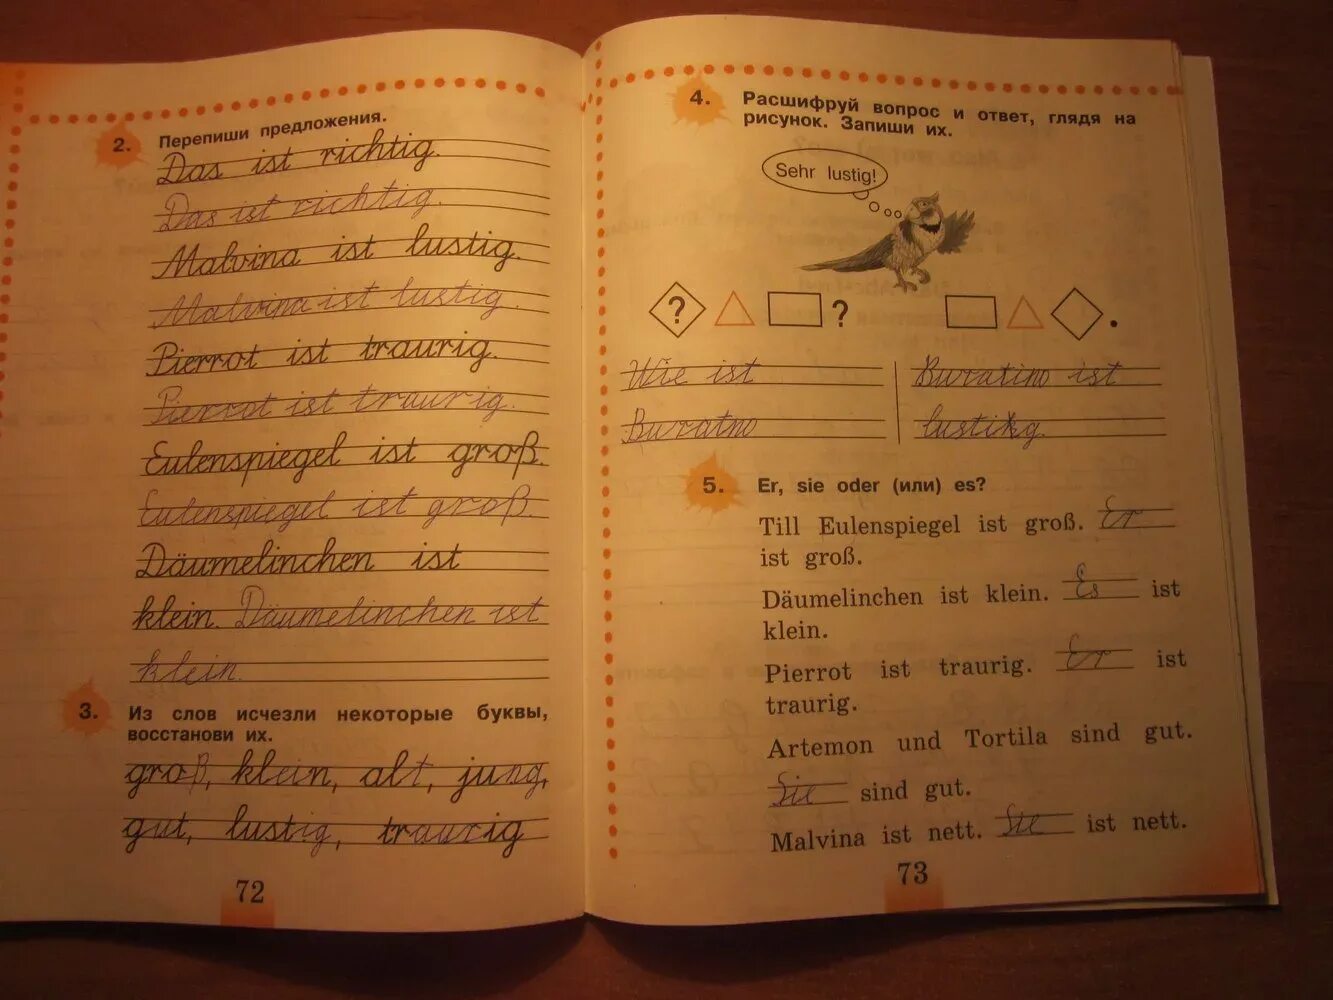 2. Перепиши предложения.
Das ist richtig.
Das ist richtig.
Malvina ist lustig.
Malvina ist lustig.
Pierrot ist traurig.
Pierrot ist traurig.
Eulenspiegel ist groß.
Eulenspiegel ist groß.
Däumelinchen ist
klein. Däumelinchen ist
klein.
3. Из слов исчезли некоторые буквы,
восстанови их.
groß, klein, alt, jung,
gut, lustig, traurig
72
4. Расшифруй вопрос и ответ, глядя на
рисунок. Запиши их.
Sehr lustig!
? ? .
Wie ist
Buratno
Buratino ist
lustikg.
5. Er, sie oder (или) es?
Till Eulenspiegel ist groß. Er
ist groß.
Däumelinchen ist klein. Es ist
klein.
Pierrot ist traurig. Er ist
traurig.
Artemon und Tortila sind gut.
Sie sind gut.
Malvina ist nett. Sie ist nett.
73